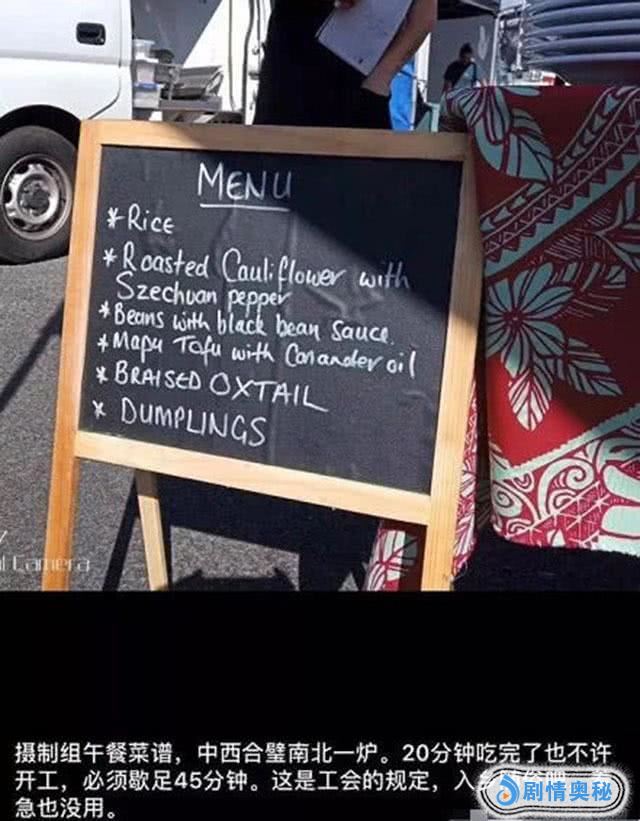 MENU
* Rice
* Roasted Cauliflower with
Szechuan pepper
* Beans with black bean sauce.
* Mapu Tofu with Corander oil
* BRAISED OXTAIL
* DUMPLINGS
Camera
摄制组午餐菜谱，中西合璧南北一炉。20分钟吃完了也不许
开工，必须歇足45分钟。这是工会的规定，入
急也没用。
剧情奥秘